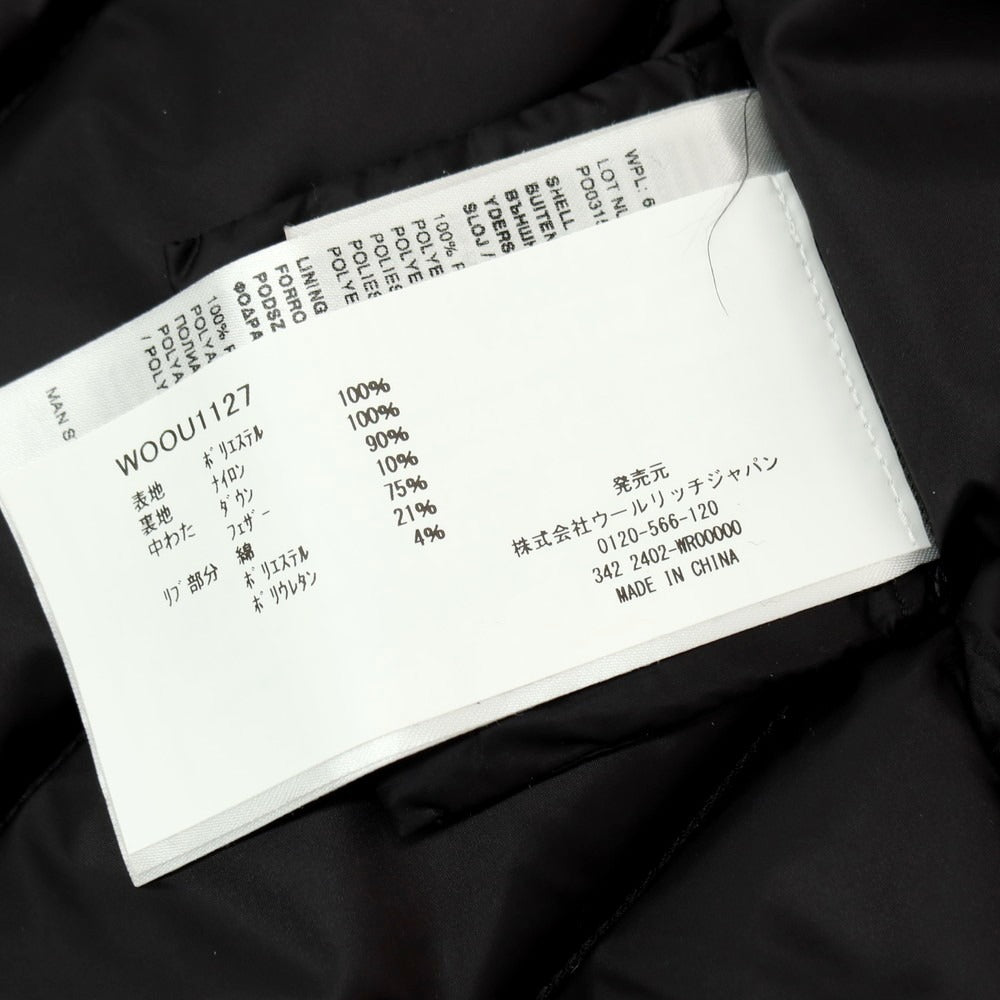 WOOU1127
表地 ポリエステル 100%
裏地 ナイロン 100%
中わた ダウン 90%
フェザー 10%
リブ部分 綿 75%
ポリエステル 21%
ポリウレタン 4%
発売元
株式会社ウールリッチジャパン
0120-566-120
342 2402-WR00000
MADE IN CHINA
WPL: 6
LOT NU
PO0315
SHELL
BUITEN
ВЪНШН
YDERS
SLOJ /
100% P
POLYE
POLYE
POLIES
POLIES
POLYE
LINING
FORRO
PODSZ
ΦΟΔΡΑ
100% P
POLYA
ПОЛИА
POLYA
/ POLY
MAN S